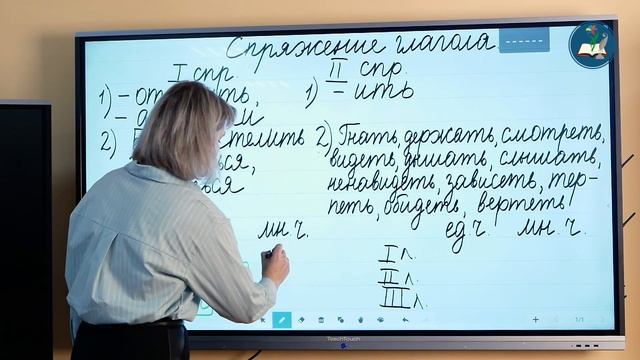 Спряжение глагола
I спр.
II спр.
1) – от ть,
1) – ить
2) стелить
2) Гнать, держать, смотреть,
видеть, дышать, слышать,
ненавидеть, зависеть, тер-
петь, обидеть, вертеть
мн. ч.
ед ч. мн. ч.
I л.
II л.
III л.
1/1
TeachTouch